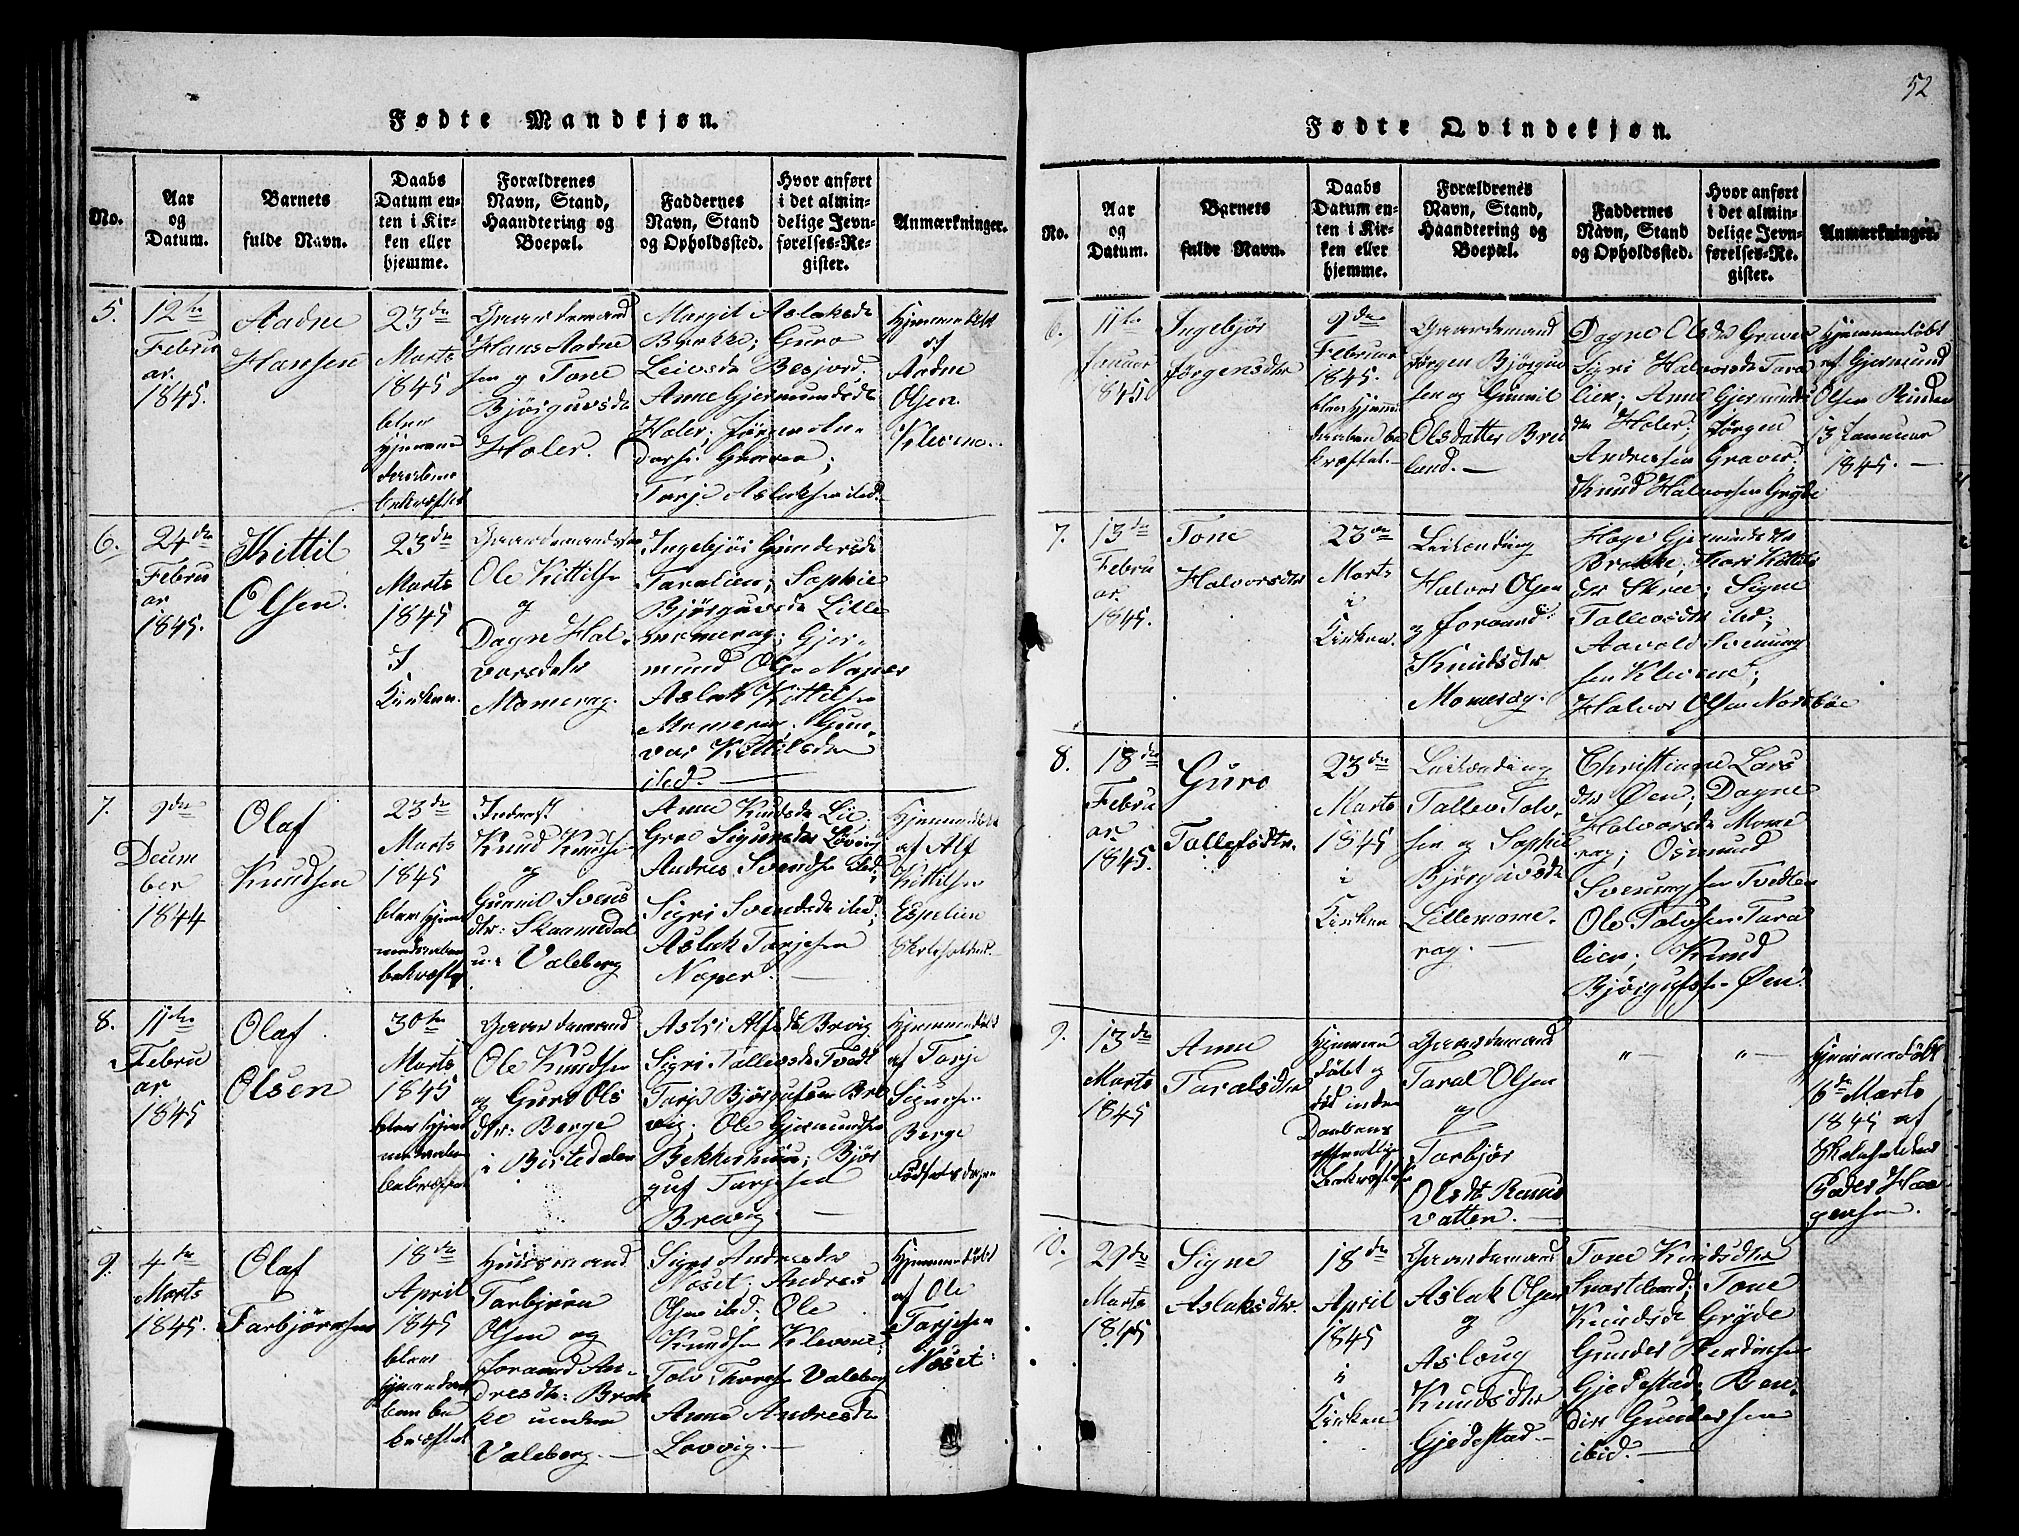 52
Fødte Mandkjøn.
No.
Aar
og
Datum.
Barnets
fulde Navn.
Daabs
Datum en-
ten i Kir-
ken eller
hjemme.
Forældrenes
Navn, Stand,
Haandtering og
Boepæl.
Faddernes
Navn, Stand
og Opholdssted.
Hvor anført
i det almin-
delige Jevn-
førelses-Re-
gister.
Anmærkninger.
5.
12te
Febru
ar.
1845.
Aadne
Hansen
23de
Marts
1845
blev
hjemme
daaben
bekræftet
Gaardemand
Hans Aadne
sen og Tone
Bjørguvsdt
Holer.
Margit Aslaksdt
Brække; Guro
Leivsdt Besjord.
Anne Gjermundsdt
Holer; Jørgen An-
dersen Graver;
Tarje Aslaksen ibid.
Hjemmedøbt
af
Aadne
Olsen
Klevene.
6.
24de
Febru
ar
1845.
Kittil
Olsen.
23de
Marts
1845
I
Kirken.
Ole Kittilsen
og
Dagne Hal-
vorsdatr
Momerag.
Ingebjør Gundersdt
Taralien; Sophie
Bjørguvsdt Lille
momerag; Gjer-
mund Olsen Naper
Aslak Kittilsen
Momerag; Gun-
vor Kittilsdtr
ibid.
7.
9de
Decem
ber
1844
Olaf
Knudsen
23de
Marts
1845
blev hjem
medaaben
bekræftet
Inderst
Knud Knudsen
og
Gunnil Svens
dtr: Skaamedal
u. Valeberg
Anne Knudsdt Lie
Gro Sigurdsdtr Løvvig
Andres Svendsen ibid;
Sigri Svendsdt ibid;
Aslak Tarjesen
Naper.
Hjemmedøbt
af Alf
Kittilsen
Espelien
Skoleholder
8.
11te
Febru
ar
1845
Olaf
Olsen
30te
Marts
1845
blev hjem
medaaben
bekræftet
Gaardemand
Ole Knudsen
og Guro Ols
dtr: Berge
i Bistedalen
Aslri Alfsdt Brevig
Sigri Tallevsdt Tvedt
Tarje Bjørgufsen Bre
vig; Ole Gjermundsen
Bekkhuus; Bjør
guf Tarjesen
Brevig
Hjemmedøbt
af Tarje
Sigursen
Berge
Fødselsdagen
9.
4de
Marts
1845.
Olaf
Tarbjørnsen
18de
April
1845
blev
hjemmedaa
ben be
kræftet
Huusmand
Tarbjørn
Olsen og
Joraand An-
dresdtr: Bræk
ke under
Valeberg.
Sigri Andresdtr
Næset; Andres
Olsen ibid; Ole
Knudsen Klevene;
Tolv Thorsen Valeberg
Anne Andresdt
Lovvig.
Hjemmedøbt
af Ole
Tarjesen
Næset.
Fødte Qvindekjøn.
No.
Aar
og
Datum.
Barnets
fulde Navn.
Daabs
Datum en-
ten i Kir-
ken eller
hjemme.
Forældrenes
Navn, Stand,
Haandtering og
Boepæl.
Faddernes
Navn, Stand
og Opholdssted.
Hvor anført
i det almin-
delige Jevn-
førelses-Re-
gister.
Anmærkninger.
6.
11te
Januar
1845
Ingebjør
Jørgensdtr
9de
Februar
1845.
blev hjemme
daaben be
kræftet.
Gaardemand
Jørgen Bjørguv
sen og Gunnil
Olsdatter Brei
land.
Dagne Olsdt Graver
Sigri Halvorsdt Tara
lien; Anne Gjermunds
dtr Holer; Jørgen
Andersen Graver;
Knud Halvorsen Gryde
Hjemmedøbt
af Gjermund
Olsen
13 Januar
1845.
7.
13de
Febru
ar.
1845.
Tone
Halvorsdtr
23de
Marts
i
Kirken.
Leilænding
Halvor Olsen
og Joraand
Knudsdtr
Momerag.
Hæge Gjermundsdtr
Brække; Kari Kittils
dtr Skree; Signe
Tallevsdtr ibid;
Aavald Svenung
sen Klevene;
Halvor Olsen Nordbøe
8.
18de
Febru
ar
1845.
Guro
Tallefsdtr.
23de
Marts
1845
i
Kirken
Leilænding
Tallev Tolv-
sen og Sophie
Bjørguvsdt
Lillemome-
rag.
Christiane Lars
dtr Øen; Dagne
Halvorsdt Mome
rag; Osmund
Svenungsen Tvedten
Ole Tolvsen Tara
lien; Knud
Bjørgufsen Øen.
9.
13de
Marts
1845
Anne
Taralsdtr
Hjemme
døbt og
død inden
Daabens
offentlige
Bekræftelse
Gaardemand
Taral Olsen
og
Tarbjør
Olsdt Ramse
vatten.
"
"
Hjemmedøbt
16de Marts
1845 af
Skoleholder
Peder Haa
gensen.
10.
29de
Marts
1845
Signe
Aslaksdtr.
18de
April
1845
i
Kirken
Gaardemand
Aslak Olsen
og
Asloug
Knudsdtr
Gjedestad
Tone Knudsdtr
Svartland; Tone
Knudsdt Gryde
Gunder
Gjedestad; Ben-
dix Gundersen
ibid.